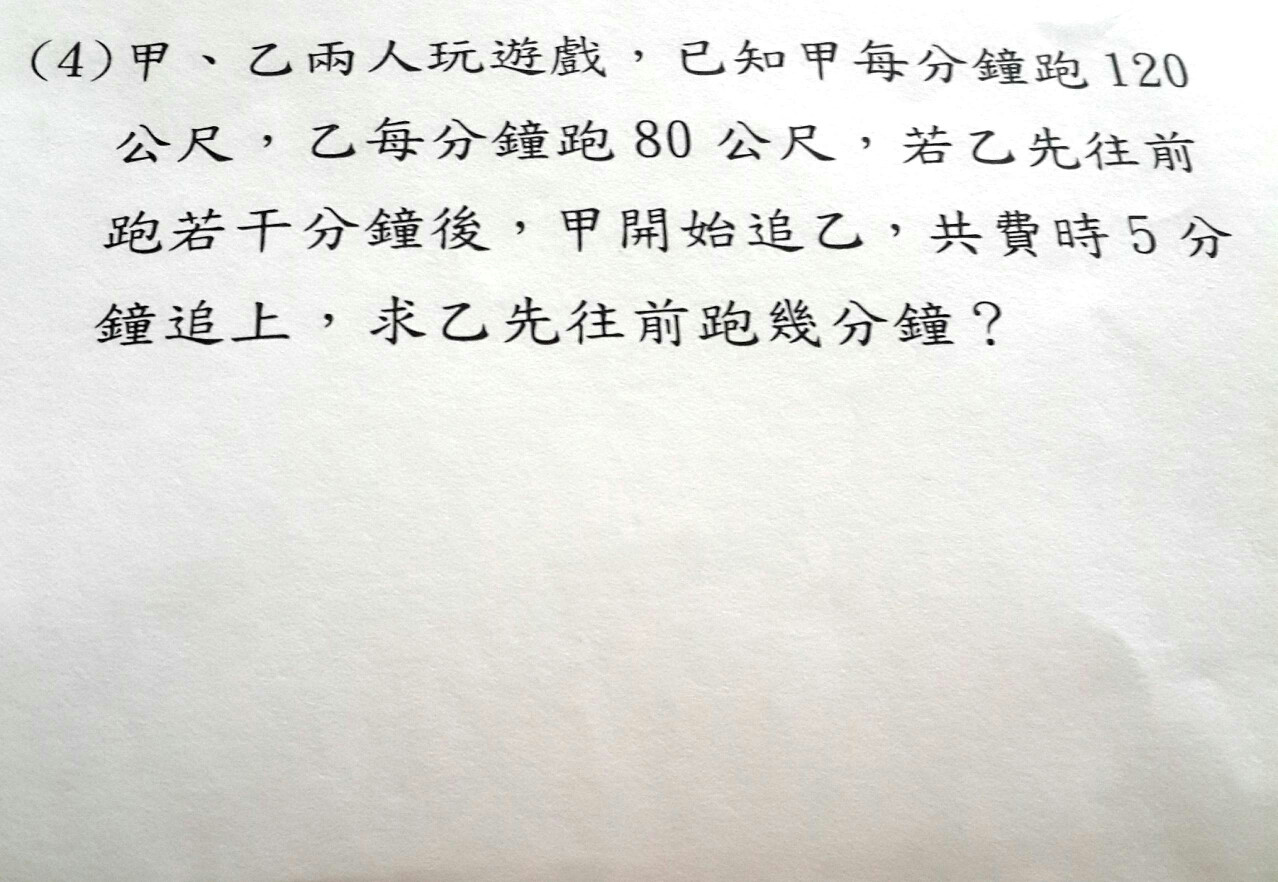 (4)甲、乙兩人玩遊戲，已知甲每分鐘跑 120
公尺，乙每分鐘跑 80 公尺，若乙先往前
跑若干分鐘後，甲開始追乙，共費時 5 分
鐘追上，求乙先往前跑幾分鐘？